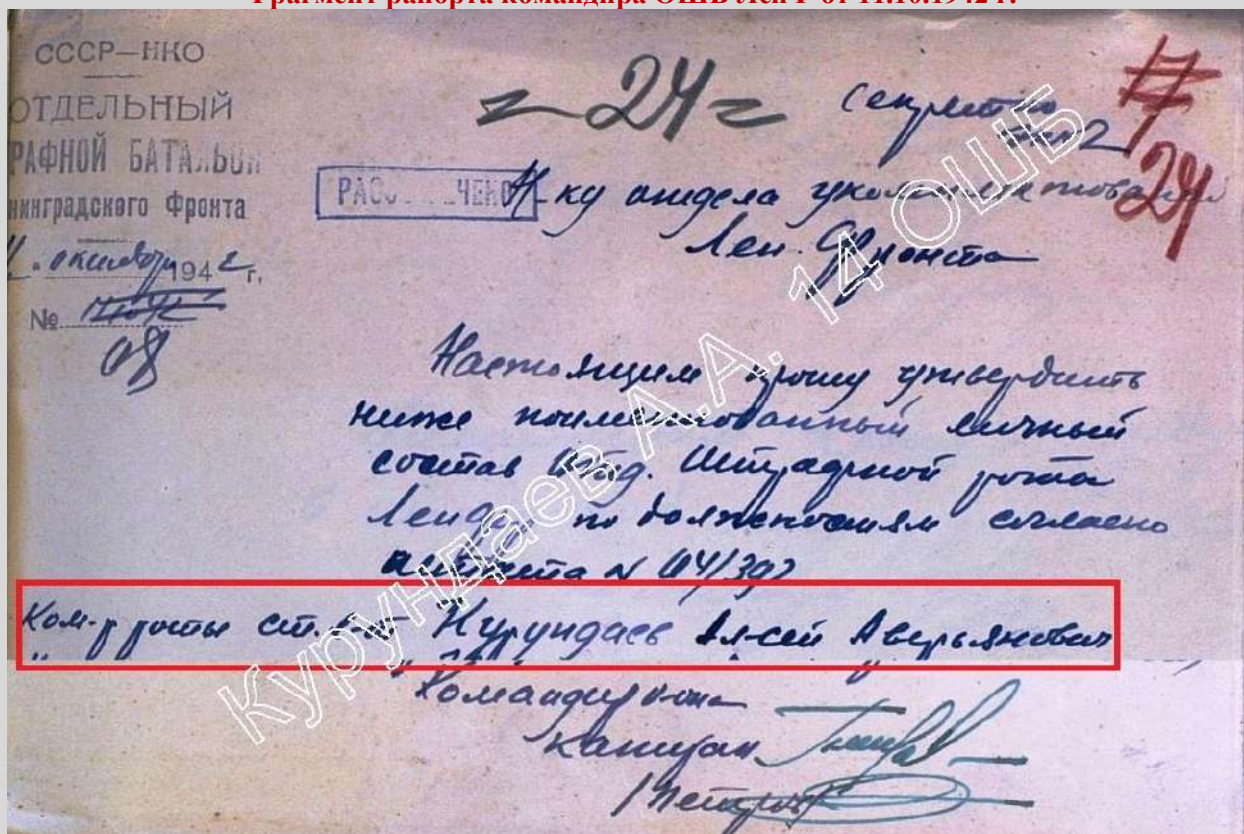 Фрагмент рапорта командира ОШБ Лен Ф от 11.10.1942 г.
СССР—НКО
ОТДЕЛЬНЫЙ
РАФНОЙ БАТАЛЬОН
нинградского Фронта
октября 1942 г.
№
08
24
Секретно
экз 2
7
24
РАССЕКРЕЧЕНО
Н-ку отдела укомплектования
Лен. Фронта
Настоящим прошу утвердить
ниже поименованный личный
состав Отд. Штрафной рота
по должностям согласно
штата N 04/392
Ком-р роты ст. л-т Курундаев Ал-сей Аверьянович
Командир б-на
капитан
/Петров/
Курундаев А.А. 14 ОШБ